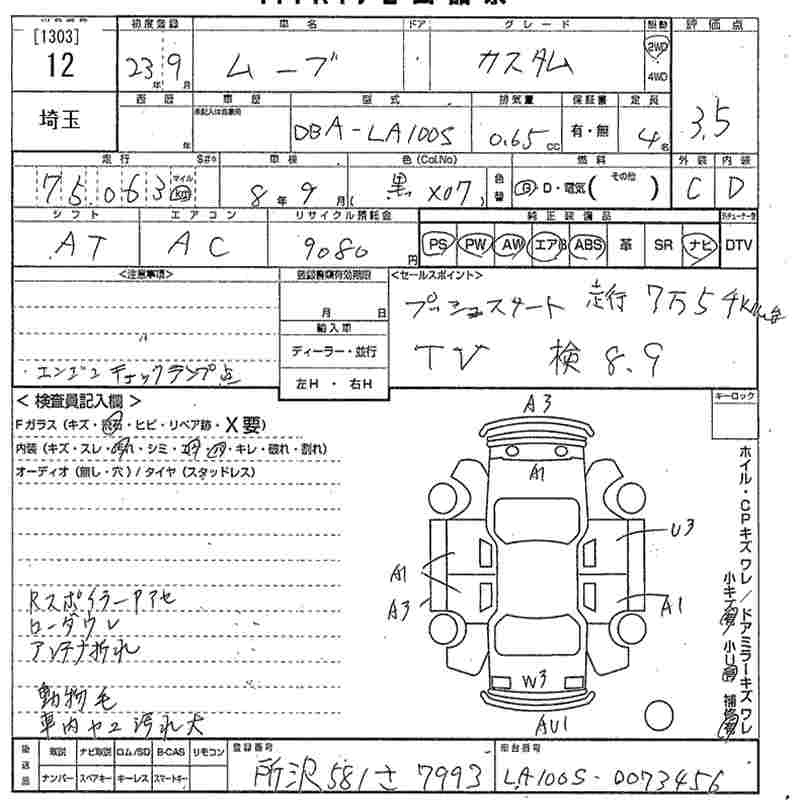 [1303]
12
埼玉
初度登録 車名 ドア グレード 駆動 評価点
23年 9月 ムーブ カスタム 2WD 4WD 3.5
西暦 車歴 型式 排気量 保証書 定員
年 未記入は自家用 DBA-LA100S 0.65cc 有・無 4名
走行 車検 色(Col.No) 燃料 外装 内装
75,063 マイル km 8年 9月 ( 黒 X07 ) 色替 G・D・電気( その他 ) C D
シフト エアコン リサイクル預託金 純正装備品
AT AC 9080円 PS PW AW エアB ABS 革 SR ナビ DTV
<注意事項>
エンジンチェックランプ点
登録書類有効期限
月 日
輸入車
ディーラー・並行
左H ・ 右H
<セールスポイント>
プッシュスタート 走行 7万5千km台
TV 検 8.9
キーロック
< 検査員記入欄 >
Fガラス (キズ・飛石・ヒビ・リペア跡・X要)
内装 (キズ・スレ・汚れ・シミ・・キレ・破れ・割れ)
オーディオ (無し・穴) / タイヤ (スタッドレス)
Rスポイラー
ローダウン
アンテナ折れ
動物毛
車内 汚れ大
A3
A1
U3
A1
A3
A1
W3
AU1
ホイル・CPキズ ワレ / ドアミラーキズ ワレ
小キズ 小U 補修
後送品 取説 ナビ取説 ロム/SD B-CAS リモコン
ナンバー スペアキー キーレス スマートキー
登録番号
所沢 581 さ 7993
車台番号
LA100S-0073456